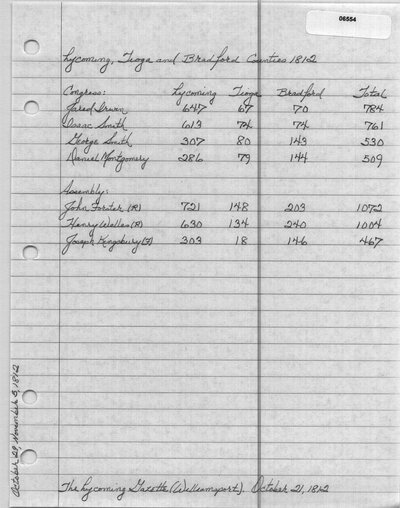 06554
Lycoming, Tioga and Bradford Counties 1812
Congress: Lycoming Tioga Bradford Total
Jared Irwin 647 67 70 784
Isaac Smith 613 74 74 761
George Smith 307 80 143 530
Daniel Montgomery 286 79 144 509
Assembly:
John Forster (R) 721 148 203 1072
Henry Welles (R) 630 134 240 1004
Joseph Kingsbury (F) 303 18 146 467
October 29, November 5, 1812
The Lycoming Gazette (Williamsport). October 21, 1812